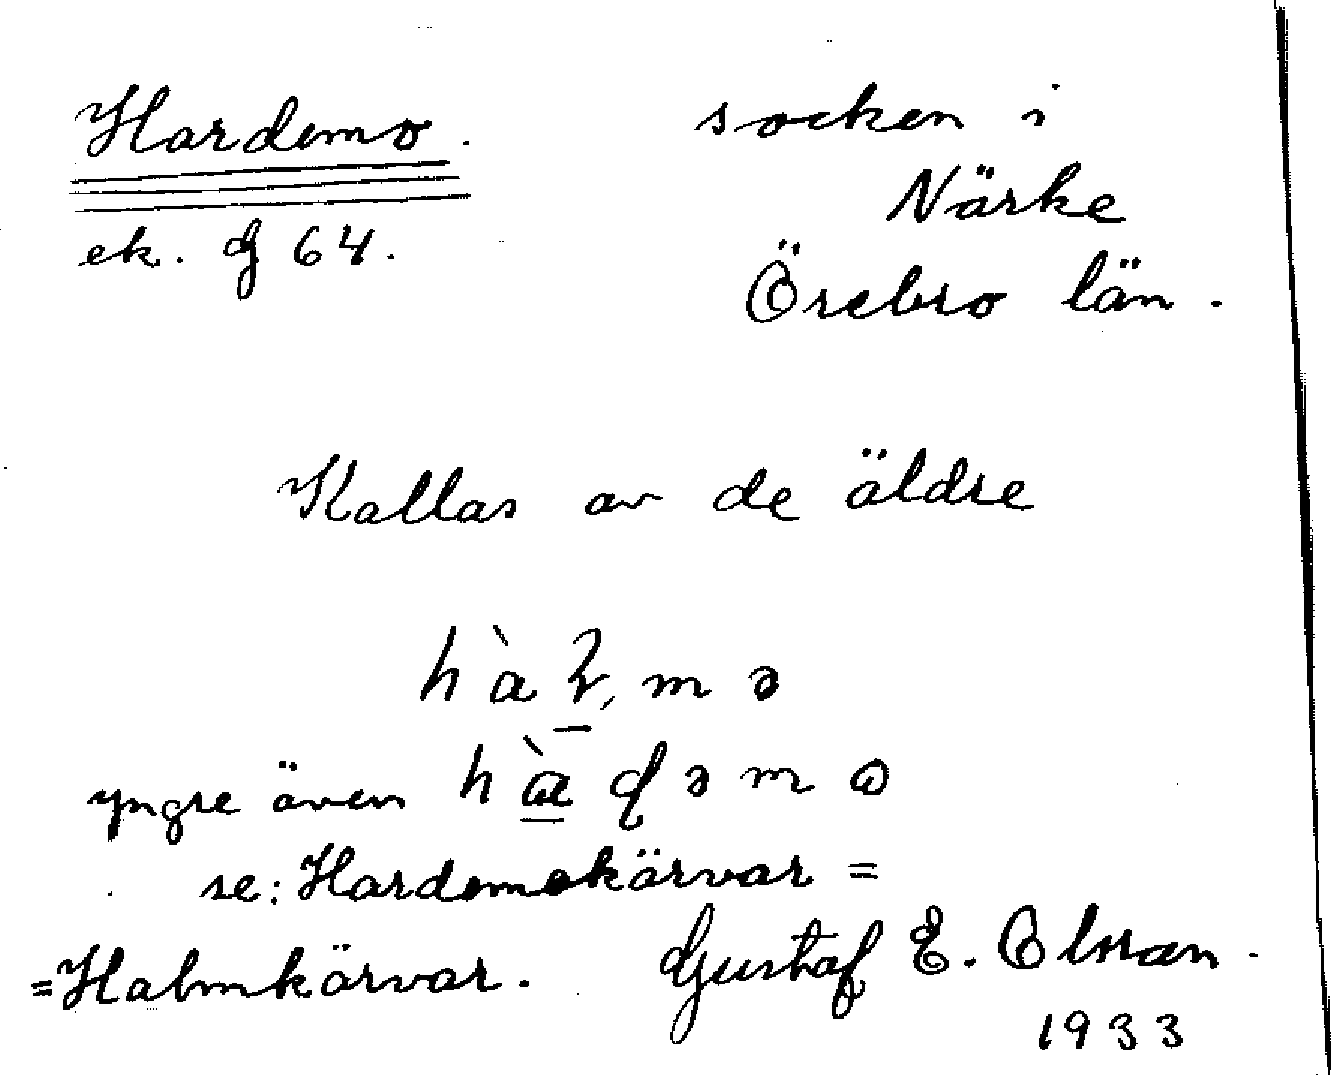 Hardemo. socken i
Närke
ek. G 64.
Örebro län.
Kallas av de äldre
yngre även
se: Hardemokärvar =
=Halmkärvar. Gustaf E. Olsson.
1933